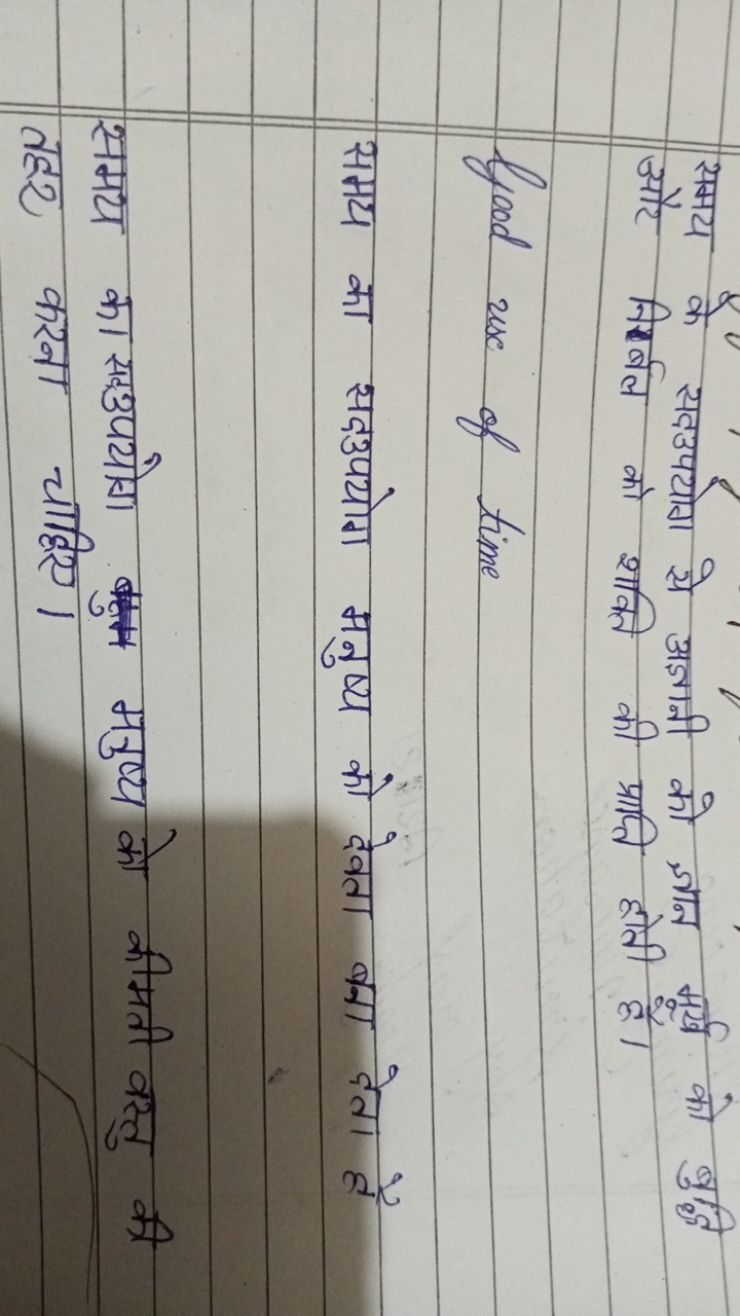 समय के सदउपयोग से अज्ञानी को ज्ञान मूर्ख को बुद्धि
और निर्बल को शक्ति की प्राप्ति होती है।
Good use of time
समय का सदउपयोग मनुष्य को देवता बना देता है
समय का सदउपयोग मनुष्य को कीमती वस्तु की
तहर करना चाहिए।